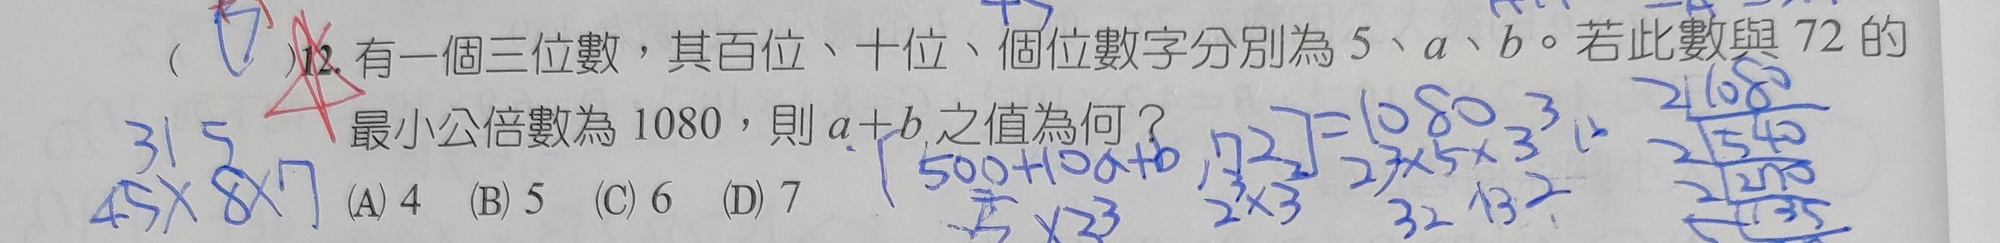 ( )12. 有一個三位數，其百位、十位、個位數字分別為 5、a、b。若此數與 72 的
最小公倍數為 1080，則 a+b 之值為何？
(A) 4 (B) 5 (C) 6 (D) 7
315
45×8×7
[500+10a+b, 72]=1080
2³×3² 2³×5×3³
5×2³
2|1080
2|540
2|270
135